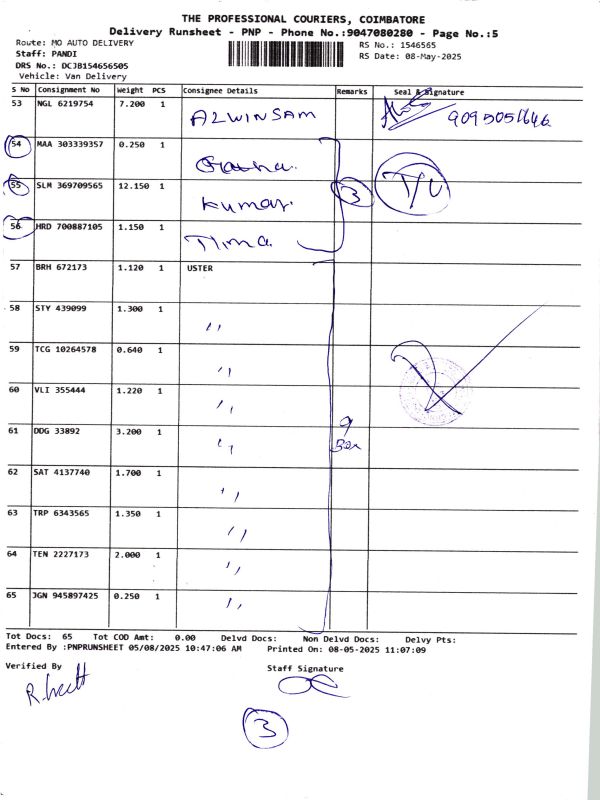 THE PROFESSIONAL COURIERS, COIMBATORE
Delivery Runsheet - PNP - Phone No.:9047080280 - Page No.:5
Route: MO AUTO DELIVERY
RS No.: 1546565
Staff: PANDI
RS Date: 08-May-2025
DRS No.: DCJB154656505
Vehicle: Van Delivery
S No Consignment No Weight PCS Consignee Details Remarks Seal & Signature
53 NGL 6219754 7.200 1 ALWINSAM 9095051646
54 MAA 303339357 0.250 1
55 SLM 369709565 12.150 1 Kumar. 3 T/U
56 HRD 700887105 1.150 1 Tima
57 BRH 672173 1.120 1 USTER
58 STY 439099 1.300 1 ,,
59 TCG 10264578 0.640 1 ,,
60 VLI 355444 1.220 1 ,,
61 DDG 33892 3.200 1 ,, 9 Box
62 SAT 4137740 1.700 1 ,,
63 TRP 6343565 1.350 1 ,,
64 TEN 2227173 2.000 1 ,,
65 JGN 945897425 0.250 1 ,,
Tot Docs: 65 Tot COD Amt: 0.00 Delvd Docs: Non Delvd Docs: Delvy Pts:
Entered By :PNPRUNSHEET 05/08/2025 10:47:06 AM Printed On: 08-05-2025 11:07:09
Verified By Staff Signature
3